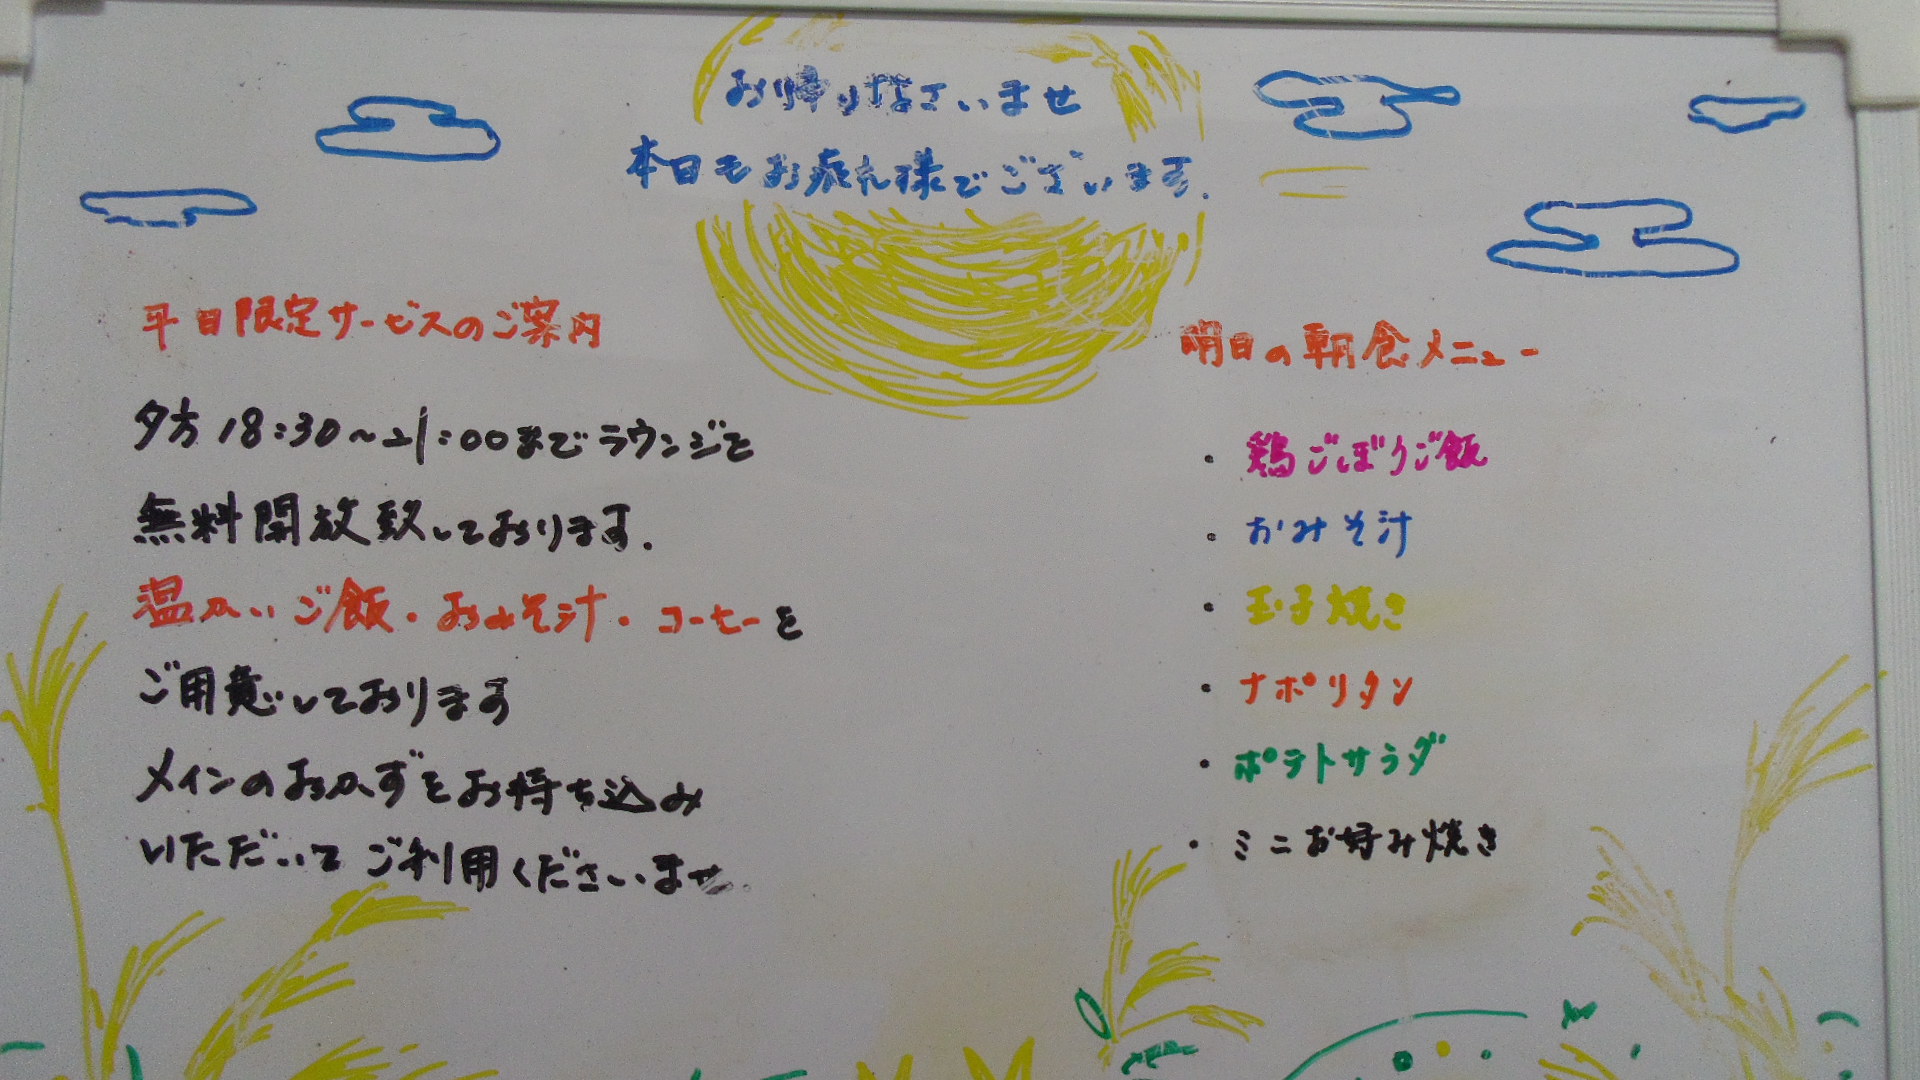 お帰りなさいませ
本日もお疲れ様でございます.
平日限定サービスのご案内
夕方18:30～21:00までラウンジを
無料開放致しております.
温かいご飯・おみそ汁・コーヒーを
ご用意しております
メインのおかずをお持ち込み
いただいてご利用くださいませ.
明日の朝食メニュー
・鶏ごぼうご飯
・おみそ汁
・玉子焼き
・ナポリタン
・ポテトサラダ
・ミニお好み焼き